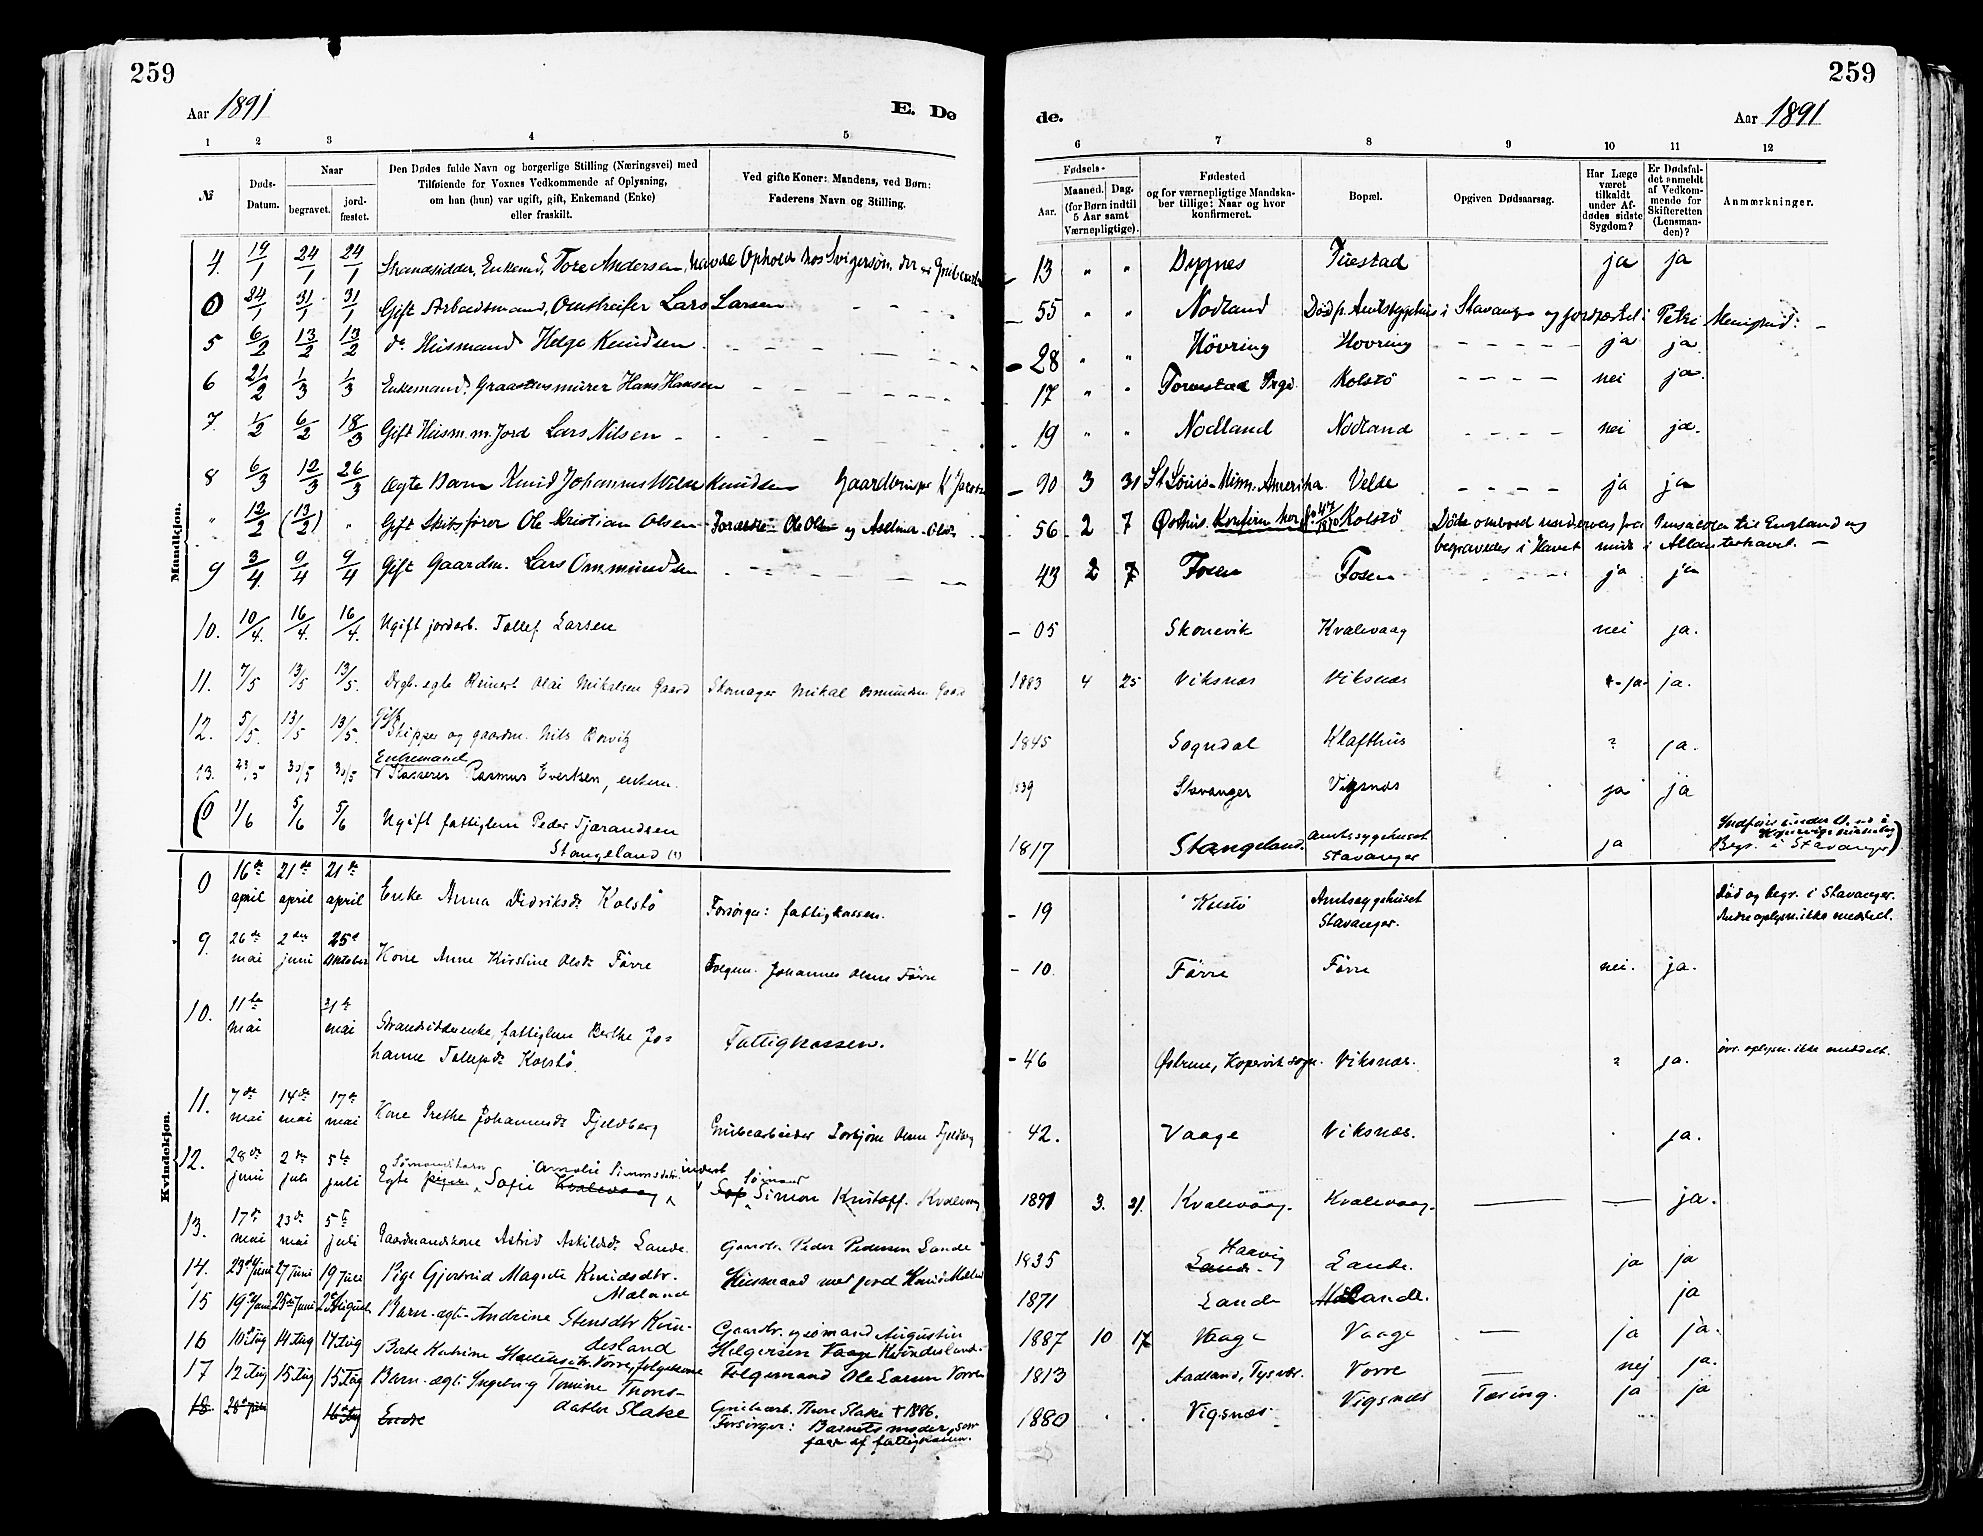 259
Aar 1891
E. Dø
1 2 3 4 5
№
Døds-Datum.
Naar
begravet.
jord-fæstet.
Den Dødes fulde Navn og borgerlige Stilling (Næringsvei) med
Tilføiende for Voxnes Vedkommende af Oplysning,
om han (hun) var ugift, gift, Enkemand (Enke)
eller fraskilt.
Ved gifte Koner: Mandens, ved Børn:
Faderens Navn og Stilling.
Mandkjøn.
4. 19/1 24/1 24/1 Strandsidder, Enkemd. Tore Andersen, havde Ophold hos Svigersøn
0 24/1 31/1 31/1 Gift Arbeidsmand, Omstreifer Lars Larsen
5 6/2 13/2 13/2 do Husmand Helge Knudsen
6 21/2 1/3 1/3 Enkemand. Graastensmurer Hans Hansen
7. 1/2 6/2 18/3 Gift Husm. m. Jord Lars Nilsen
8 6/3 12/3 26/3 Ægte Barn Knud Johannes Knudsen Gaardbruger K.
" 12/2 (13/2) " Gift Skibsfører Ole Kristian Olsen Forældre: Ole Olsen og
9 3/4 9/4 9/4 Gift Gaardm. Lars Ommundsen
10. 10/4. 16/4. 16/4. Ugift jordarb. Tollef Larsen
11. 7/5 13/5 13/5. egte Reinert Olai Mikalsen Gaard Skomager Mikal Osmundsen Gaard
12. 5/5. 13/5 13/5. Gift Skipper og gaardm. Nils
13. 23/5 30/5 30/5 Enkemand Kasserer Rasmus Evertsen, enkem.
(0 1/6 5/6 5/6 Ugift fattiglem Peder Tjærandsen
Stangeland (?)
Kvindekjøn.
0 16de april 21de april 21de april Enke Anna Didriksdr. Kolstø Forsørger: fattigkassen.
9. 26de mai 2den juni 25de Oktober Kone Anne Kirstine Olsdr. Førre Johannes Olsen Førre
10. 11te mai 31te mai Strandsidderenke, fattiglem Berthe Jo-
hanne Kolstø. Fattigkassen.
11. 7de mai 14de mai 17de mai Kone Grethe Johannesdr. Fjeldberg Grubearbeider Torbjørn Olsen Fjeldberg
12. 28de juni 2de juli 5te juli Egte Sømandsbarn Sofie Amalie Simonsdatter Kvalevaag Sømand Simon Kristoff. Kvalevaag
13. 17de mai 23de mai 5te juli Gaardmandskone Astrid Askildsdr. Lande. Gaardbr. Peder Pedersen Lande
14. 23de Juni 27 Juni 19 Juli Pige Gjertrud Magrete Knudsdtr.
Mæland Husmand med jord
15 19de Juni 25de Juni 2de August Barn-ægte-Andrine Stensdtr Kvin-
desland Gaardbr. og sømand Augustin
16 10de Aug 14 Aug 14 Aug Berte Katrine Vorre, folgekone Helgersen Vaage Kvindesland.
17 12 Aug 15 Aug 15 Aug Barn-ægte-Ingeborg Tomine Thors-
datter Slake Folgemand Ole Larsen Vorre
18 16de Aug Grubearb. Thore Slake † 1886.
Forsørger: Barnets moder, som
faar af fattigkassen.
de.
259
Aar 1891
6 7 8 9 10 11 12
Fødsels-
Aar.
Maaned. Dag.
(for Børn indtil
5 Aar samt
Værnepligtige).
Fødested
og for værnepligtige Mandska-
ber tillige: Naar og hvor
konfirmeret.
Bopæl.
Opgiven Dødsaarsag.
Har Læge
været
tilkaldt
under Af-
dødes sidste
Sygdom?
Er Dødsfal-
det anmeldt
af Vedkom-
mende for
Skifteretten
(Lensman-
den)?
Anmærkninger.
- 13 " " Dygnes Tuestad ja ja
- 55 " " Nodland Død p. Amtssygehus i Stavanger og jordfæstet i Petri Menighed. -
- 28 " " Høvring Hovring ja ja
- 17 " " Torvestad Prgj. Kolstö nei ja.
- 19 " " Nodland Nodland nei ja.
- 90 3 31 St. Louis-Minn. Amerika. Velde ja ja
56 2 7 Østhus. Kolstö Døde ombord underveis fra Pensacola til England og
begravedes i Havet midt i Atlanterhavet. -
43 2 7 Fosen Fosen ja ja
- 05 Skonevik Kvalevaag nei ja.
1883 4 25 Viksnæs Viksnæs ja ja.
1845 Sogndal Klafthus ? ja.
1839 Stavanger Vigsnæs ja ja
1817 Stangeland. Amtssygehuset
Stavanger ja Begr. i Stavanger)
- 19 Amtssygehuset
Stavanger. Død og begr. i Stavanger.
Andre oplysn. ikke meddelt.
- 10. Førre Førre nei. ja.
- 46 Østreim, Kopervik sogn. Viksnæs. ? ja. øvr. oplysn. ikke meddelt.
- 42. Vaage Viksnæs. ja.
1891 3. 21. Kvalevaag. Kvalevaag. ja.
1835 Haavig Lande. Lande. ja ja
1871 Lande ja
1887 10 17 Vaage Vaage ja ja.
1813 Aadland, Tysvær. Vorre nej ja.
1880 Vigsnæs Vigsnæs Tæring. ja ja